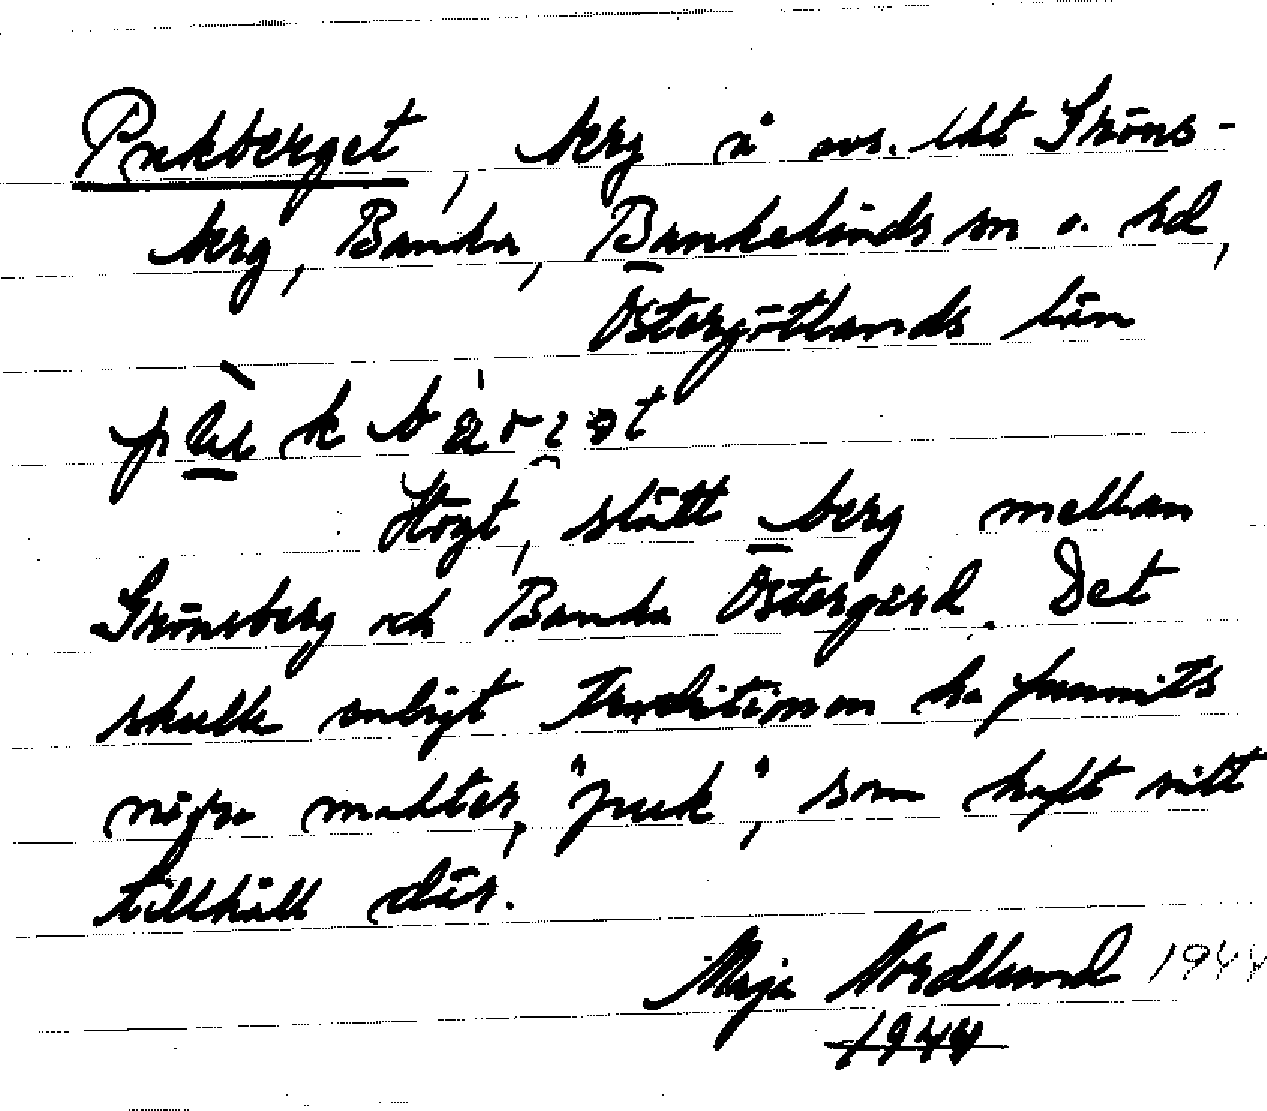 Pukberget, berg å avs. lht Gröns-
berg, Banka, Bankekinds sn o. hd,
Östergötlands län
berget
Högt, slätt berg mellan
Grönsberg och Banka Östergård. Det
skulle enligt traditionen ha funnits
några makter, "puk", som haft sitt
tillhåll där.
Maja Nordlund 1944
1944